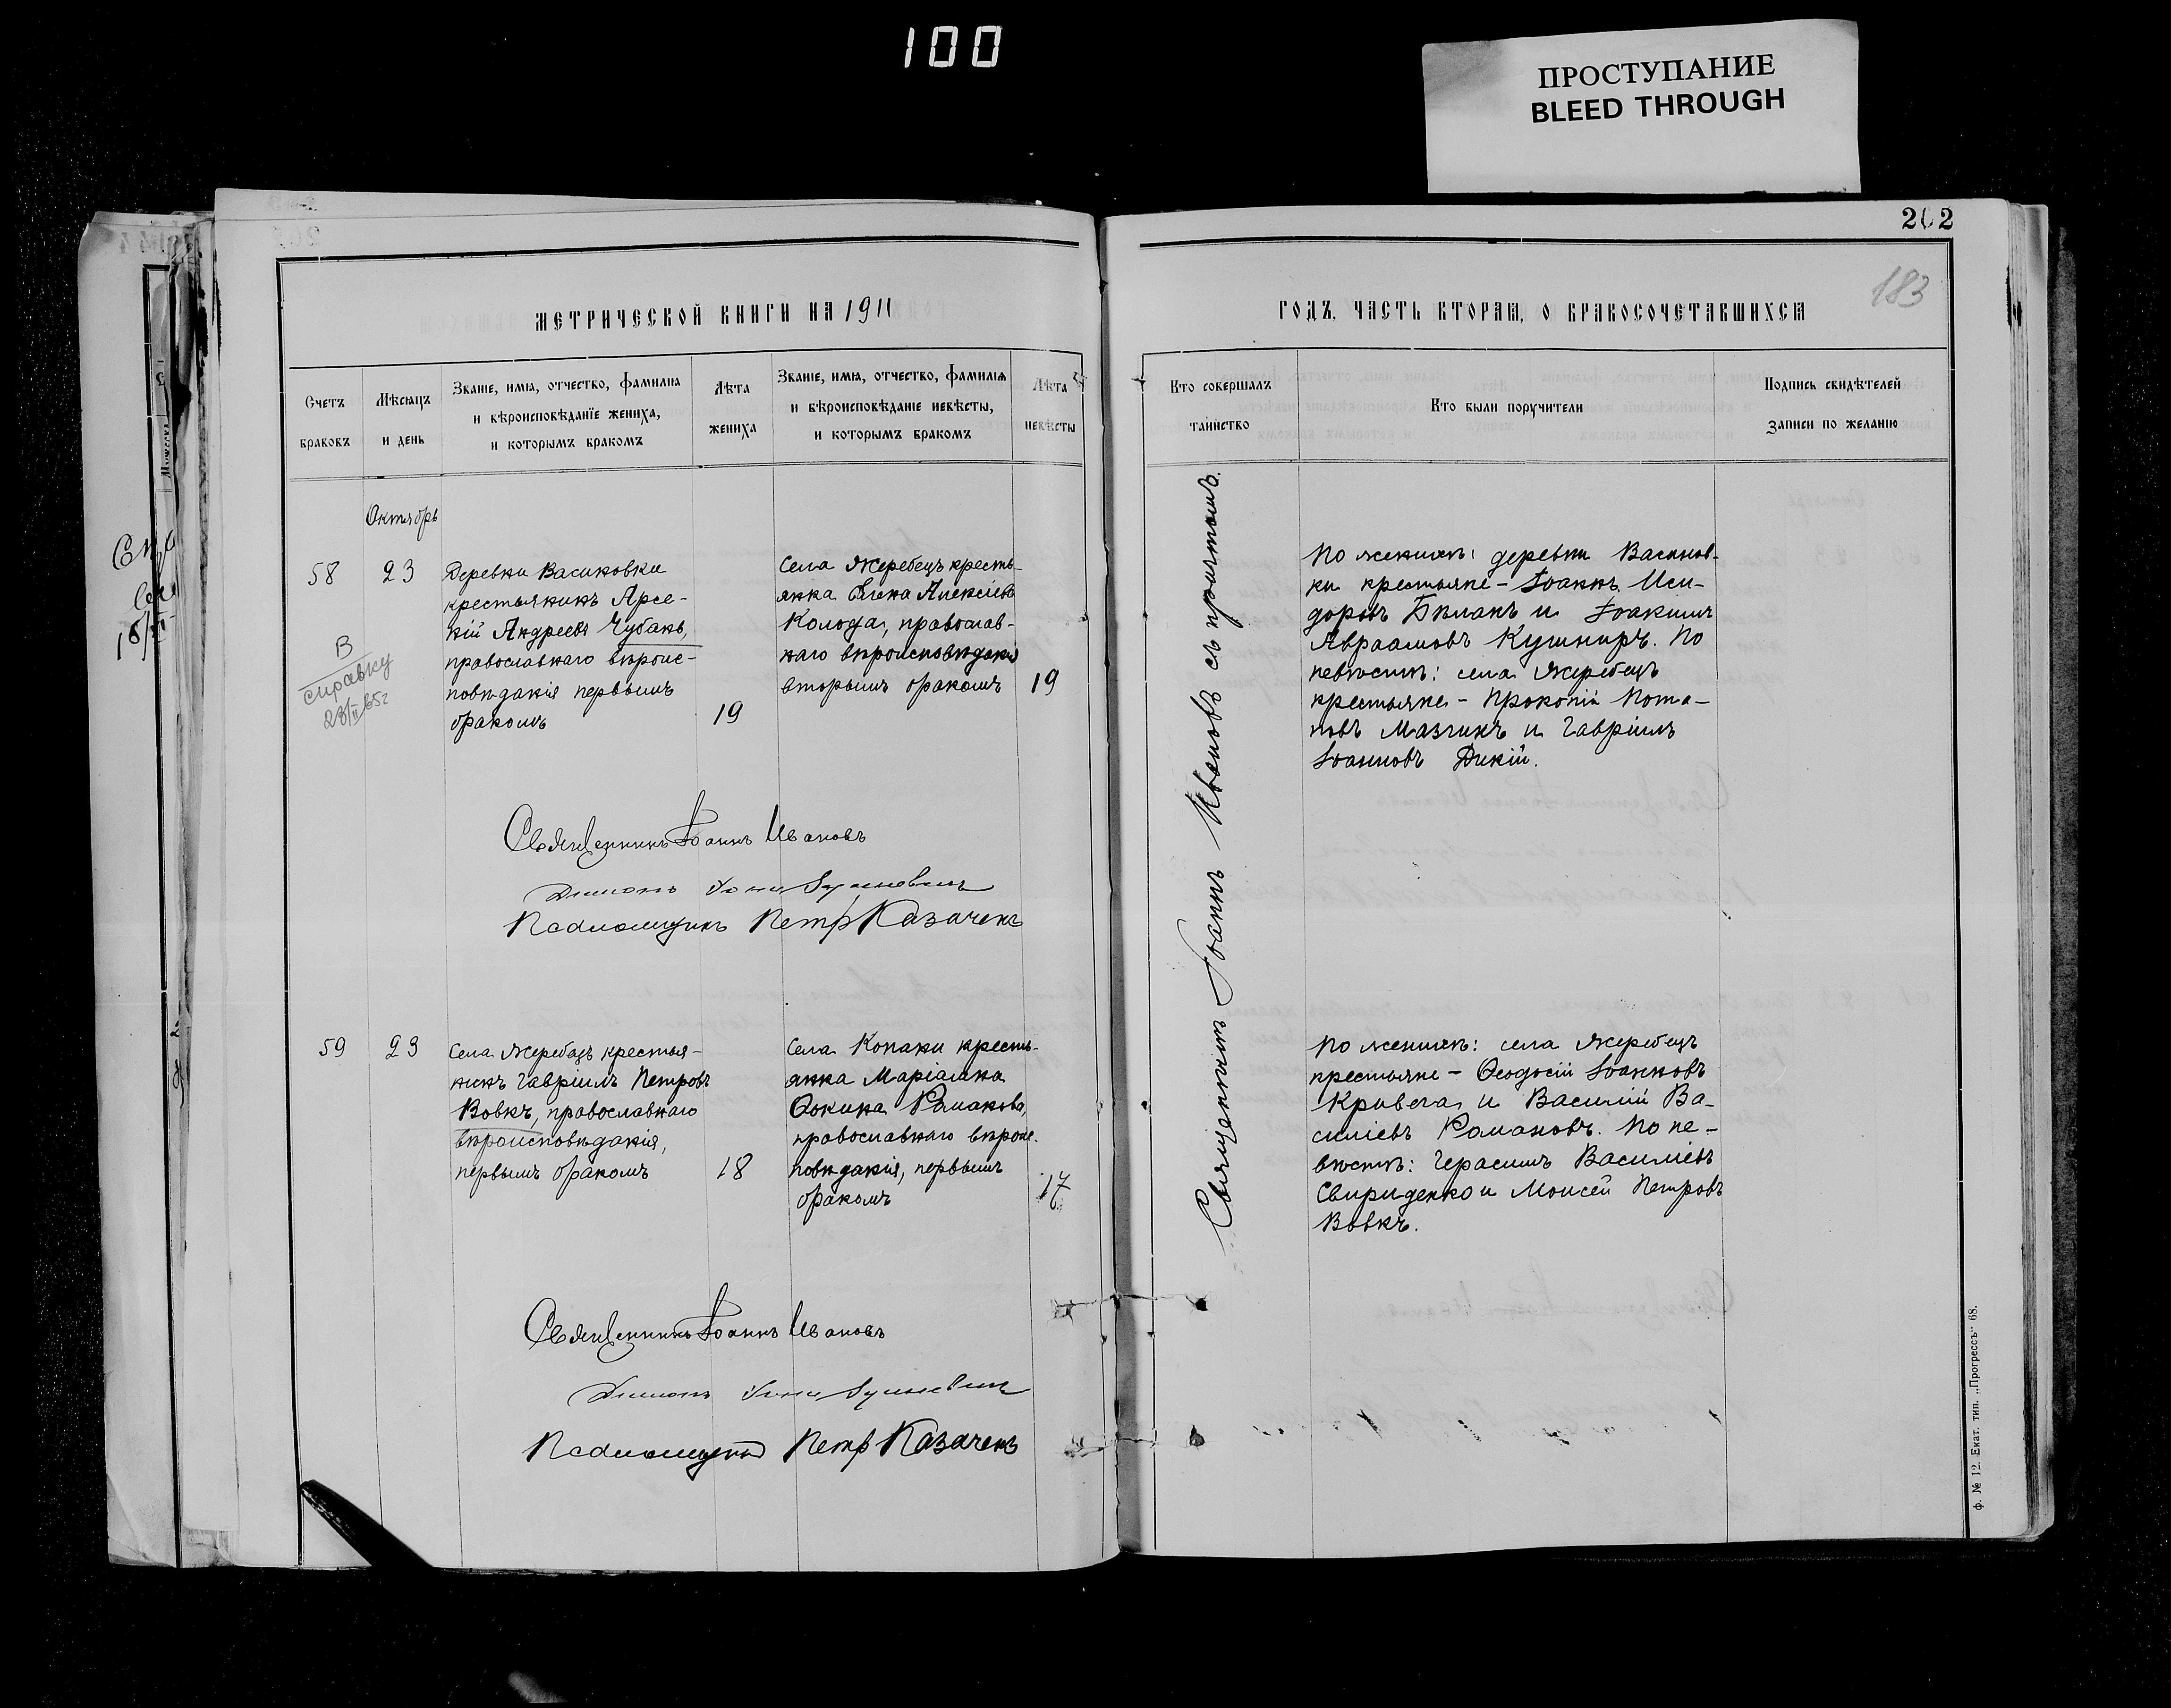 100
ПРОСТУПАНИЕ
BLEED THROUGH
202
183
МЕТРИЧЕСКОЙ КНИГИ НА 1911
ГОДЪ, ЧАСТЬ ВТОРАЯ, О БРАКОСОЧЕТАВШИХСЯ
Счетъ
браковъ
Мѣсяцъ
и день
Званіе, имя, отчество, фамилія
и вѣроисповѣданіе жениха,
и которымъ бракомъ
Лѣта
жениха
Званіе, имя, отчество, фамилія
и вѣроисповѣданіе невѣсты,
и которымъ бракомъ
Лѣта
невѣсты
Кто совершалъ
таинство
Кто были поручители
Подпись свидѣтелей
записи по желанію
Октябрь
58
23
Деревни Васиновки
крестьянинъ Арсе-
ній Андреевъ Чубань,
православнаго вѣроис-
повѣданія первымъ
бракомъ
19
Села Жеребецъ кресть-
янка Елена Алексіева
Колода, православ-
наго вѣроисповѣданія
вторымъ бракомъ
19
В
справку
28/II 65г
Священникъ Іоаннъ Ивановъ съ причтомъ.
По женихѣ: деревни Васинов-
ки крестьяне - Іоаннъ Иси-
доровъ Бѣланъ и Іоакимъ
Авраамовъ Кушниръ. По
невѣстѣ: села Жеребецъ
крестьяне - Прокопій Пота-
повъ Мазгинъ и Гавріилъ
Іоанновъ Дикій.
Священникъ Іоаннъ Ивановъ
Псаломщикъ Петръ Казачекъ
59
23
Села Жеребецъ крестья-
нинъ Гавріилъ Петровъ
Вовкъ, православнаго
вѣроисповѣданія,
первымъ бракомъ
18
Села Копани кресть-
янка Маріамна
Ѳокина Романова,
православнаго вѣроис-
повѣданія, первымъ
бракомъ
17
По женихѣ: села Жеребецъ
крестьяне - Ѳеодосій Іоанновъ
Кривега и Василій Ва-
силіевъ Романовъ. По не-
вѣстѣ: Герасимъ Василіевъ
Свириденко и Моисей Петровъ
Вовкъ.
Священникъ Іоаннъ Ивановъ
Псаломщикъ Петръ Казачекъ
ф. № 12. Екат. тип. „Прогрессъ" 68.